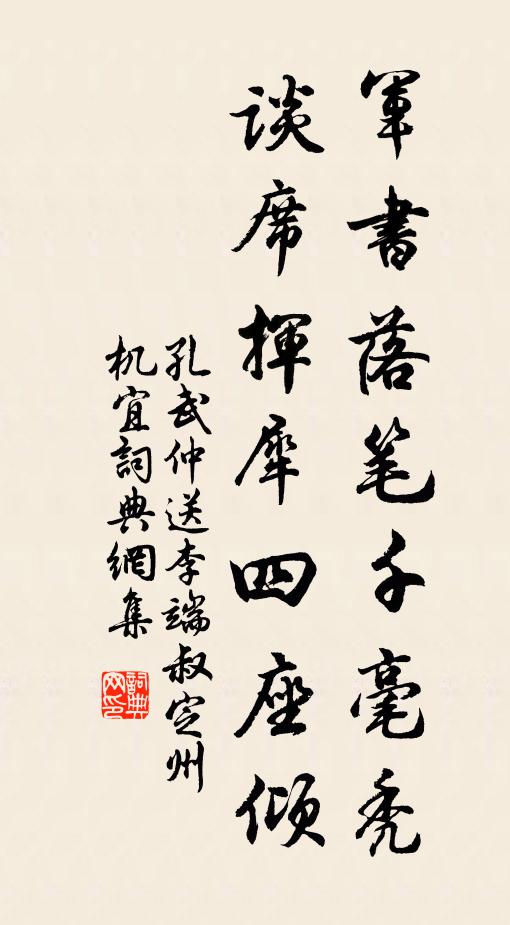 軍書落笔千毫禿
談席揮犀四座傾
孔武仲送李端叔定州
机宜詞典網集
詞典网印